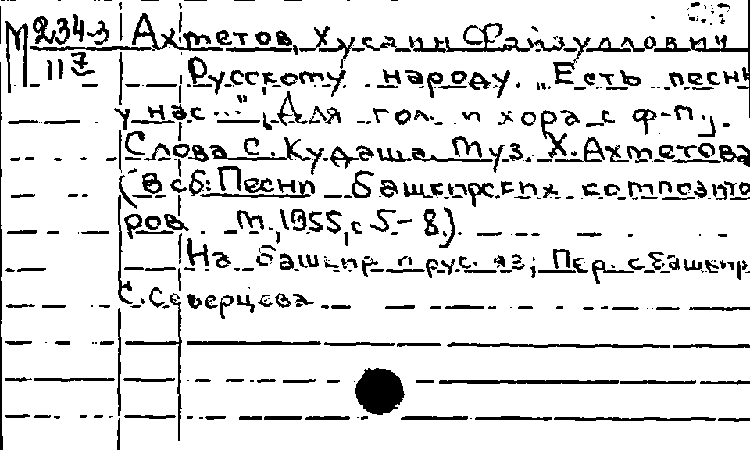 М 234-3 Ахметов, Хусаин Файзуллович
11 7 Русскому народу. „Есть песнь
у нас..." Для гол. и хора с ф-п.,
Слова С. Кудаша. Муз. Х. Ахметова
(В сб: Песни башкирских композито
ров. М., 1955, с 5-8.)
На башкир. и рус. яз; Пер. с башкир
С. Северцева